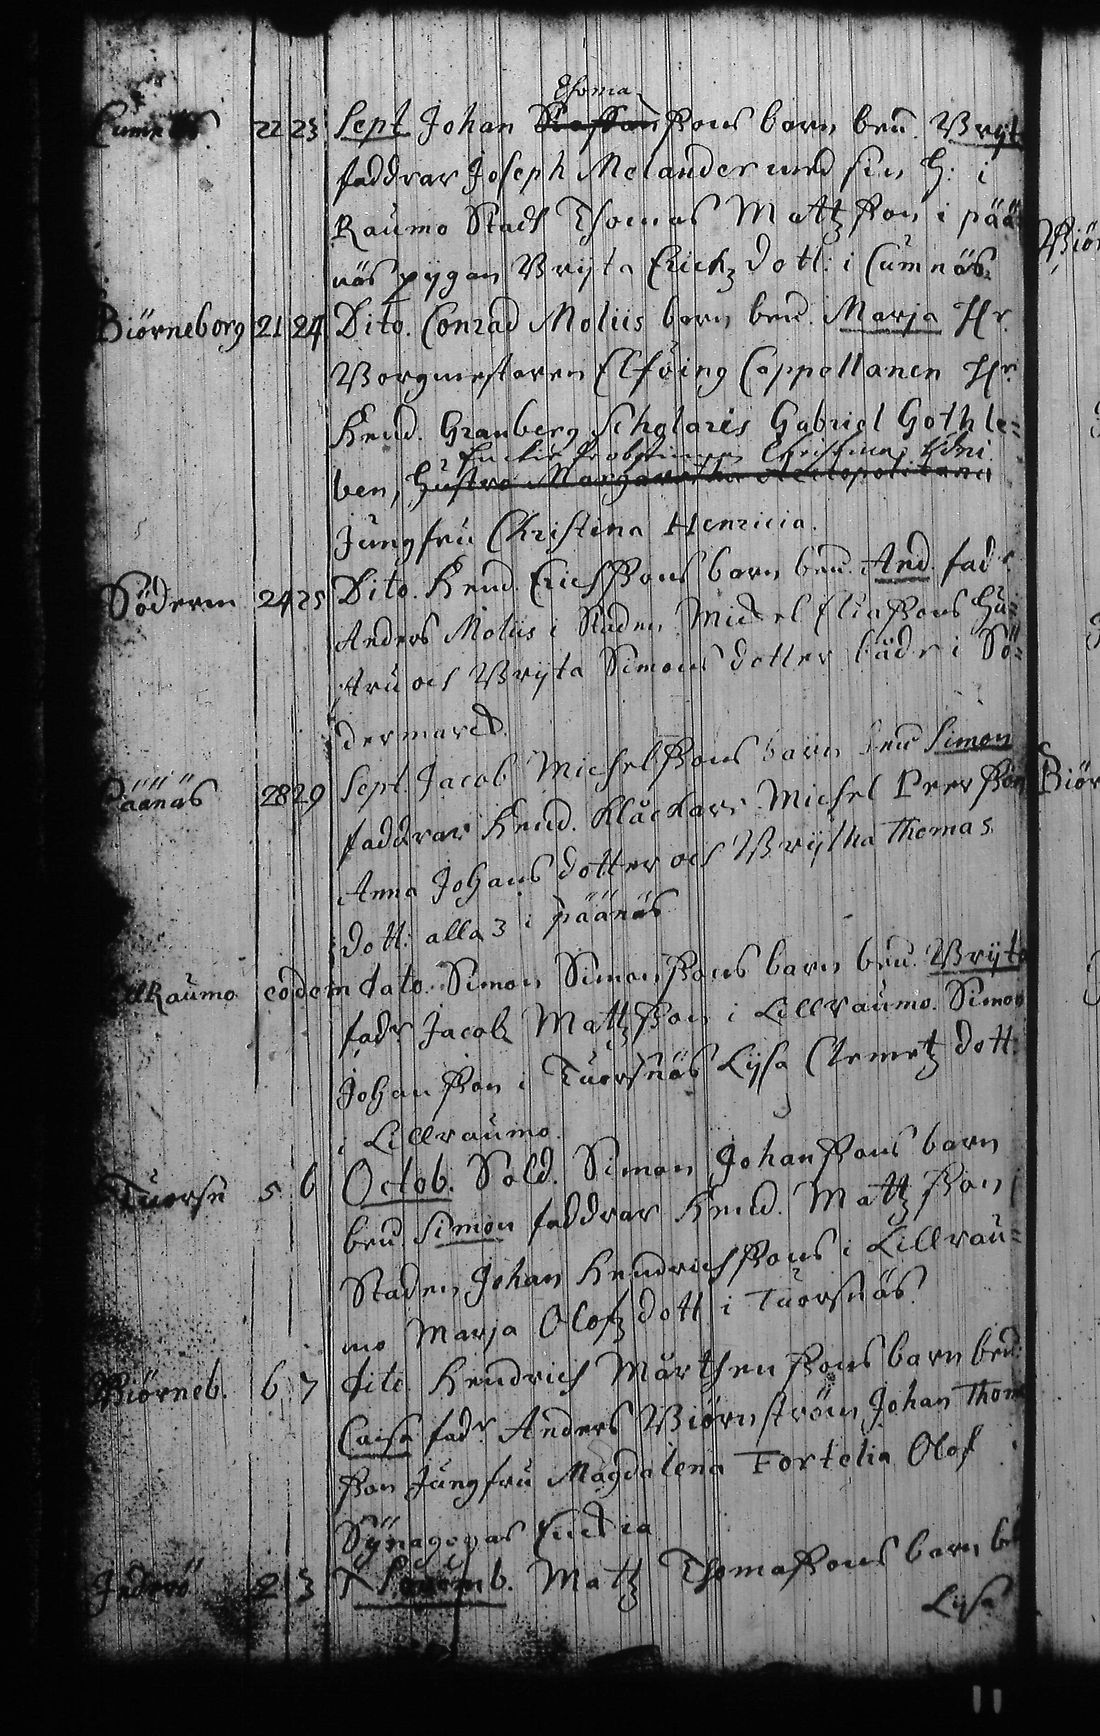 Thoma
Cumnäs 22 23 Sept Johan Staffanßons barn bnd. Bryt
faddrar Joseph Melander med sin H: i
Raumo Stadh Thomas Mattzßon i pää
näs pygan Bryta Erichz dott: i Cumnäs
Biörneborg 21 24 Dito. Conrad Moliis barn bnd. Marja Hr.
Borgmestaren Elfving Cappellanen Hr.
Hend. Granberg Scholaris Gabriel Gothle=
Christina
ben, Hustro Margaretha
Jungfru Christina Henricia.
Söderm 24 25 Dito. Hend. Erichßons barn bnd. And. fadr
Anders Moliis i Staden Michel Eliaßons Hu=
stru och Bryta Simons dotter både i Sö=
dermarck.
Päänäs 28 29 Sept. Jacob Michelßons barn bnd Simon
faddrar Hend. Klåckare Michel Peerßon
Anna Johans dotter och Brytha Thomas
dott: alla 3 i päänäs
Raumo eodem dato. Simon Simonßons barn bnd. Bryta
fadr Jacob Mattzßon i Lillraumo. Simon
Johanßon i Tuorsnäs Lysa Clemetz dott.
i Lillraumo.
Tuorsn 5 6 Octob. Sold. Simon Johanßons barn
bnd. Simon faddrar Hend. Mattzßon i
Staden Johan Hendrichßons i Lillrau=
mo Marja Olofz dott i Tuorsnäs.
Biörneb. 6 7 dito. Hendrich Mårthenßons barn bnd.
Caisa fadr. Anders Biörnström Johan Thom
ßon Jungfru Magdalena Fortelia Olof
Synagogas
Inderö 2 3 Mattz Thomaßons barn
Lysa
Biör
Biör
11